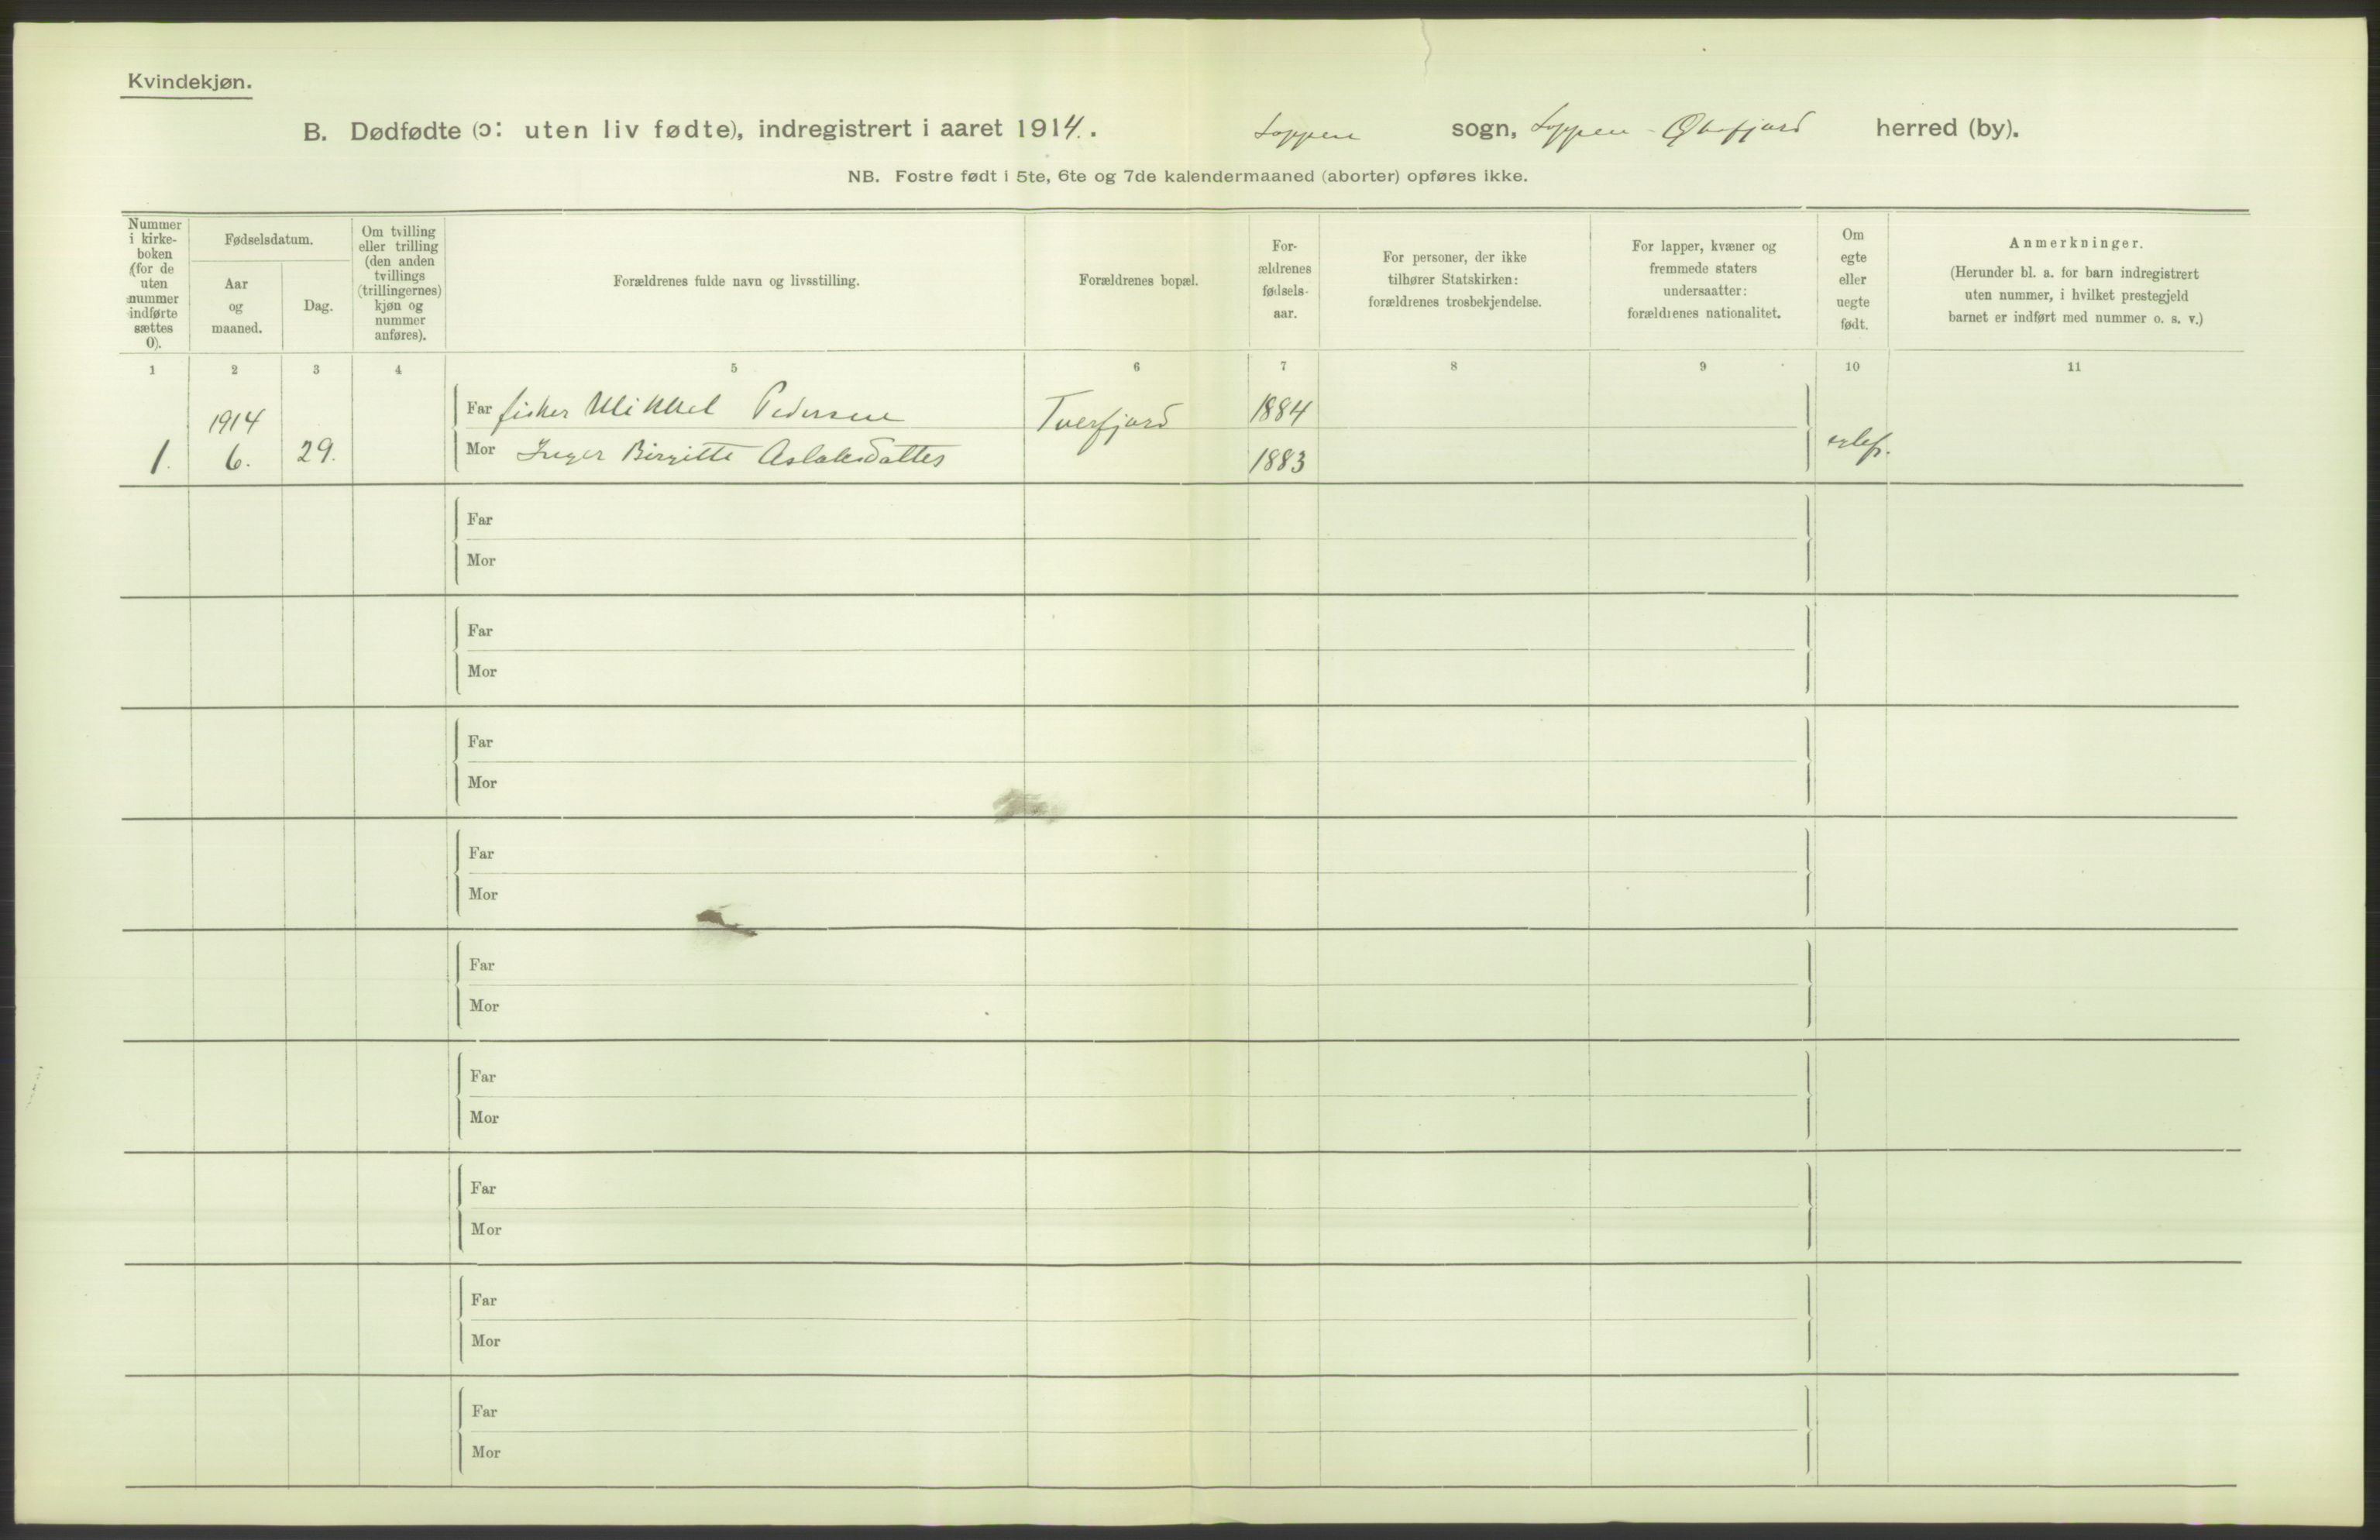 Kvindekjøn.
B. Dødfødte (ɔ: uten liv fødte), indregistrert i aaret 1914. . Loppen sogn, Loppen - Øksfjord herred (by).
NB. Fostre født i 5te, 6te og 7de kalendermaaned (aborter) opføres ikke.
Nummer
i kirke-
boken
(for de
uten
nummer
indførte
sættes
0).
Fødselsdatum.
Aar
og
maaned.
Dag.
Om tvilling
eller trilling
(den anden
tvillings
(trillingernes)
kjøn og
nummer
anføres).
Forældrenes fulde navn og livsstilling.
Forældrenes bopæl.
For-
ældrenes
fødsels-
aar.
For personer, der ikke
tilhører Statskirken:
forældrenes trosbekjendelse.
For lapper, kvæner og
fremmede staters
undersaatter:
forældrenes nationalitet.
Om
egte
eller
uegte
født.
Anmerkninger.
(Herunder bl. a. for barn indregistrert
uten nummer, i hvilket prestegjeld
barnet er indført med nummer o. s. v.)
1 2 3 4 5 6 7 8 9 10 11
1914
Far fisker Mikkel Pedersen Tverfjord 1884
1. 6. 29. Mor Inger Birgitte Aslaksdatter 1883
Far
Mor
Far
Mor
Far
Mor
Far
Mor
Far
Mor
Far
Mor
Far
Mor
Far
Mor
Far
Mor